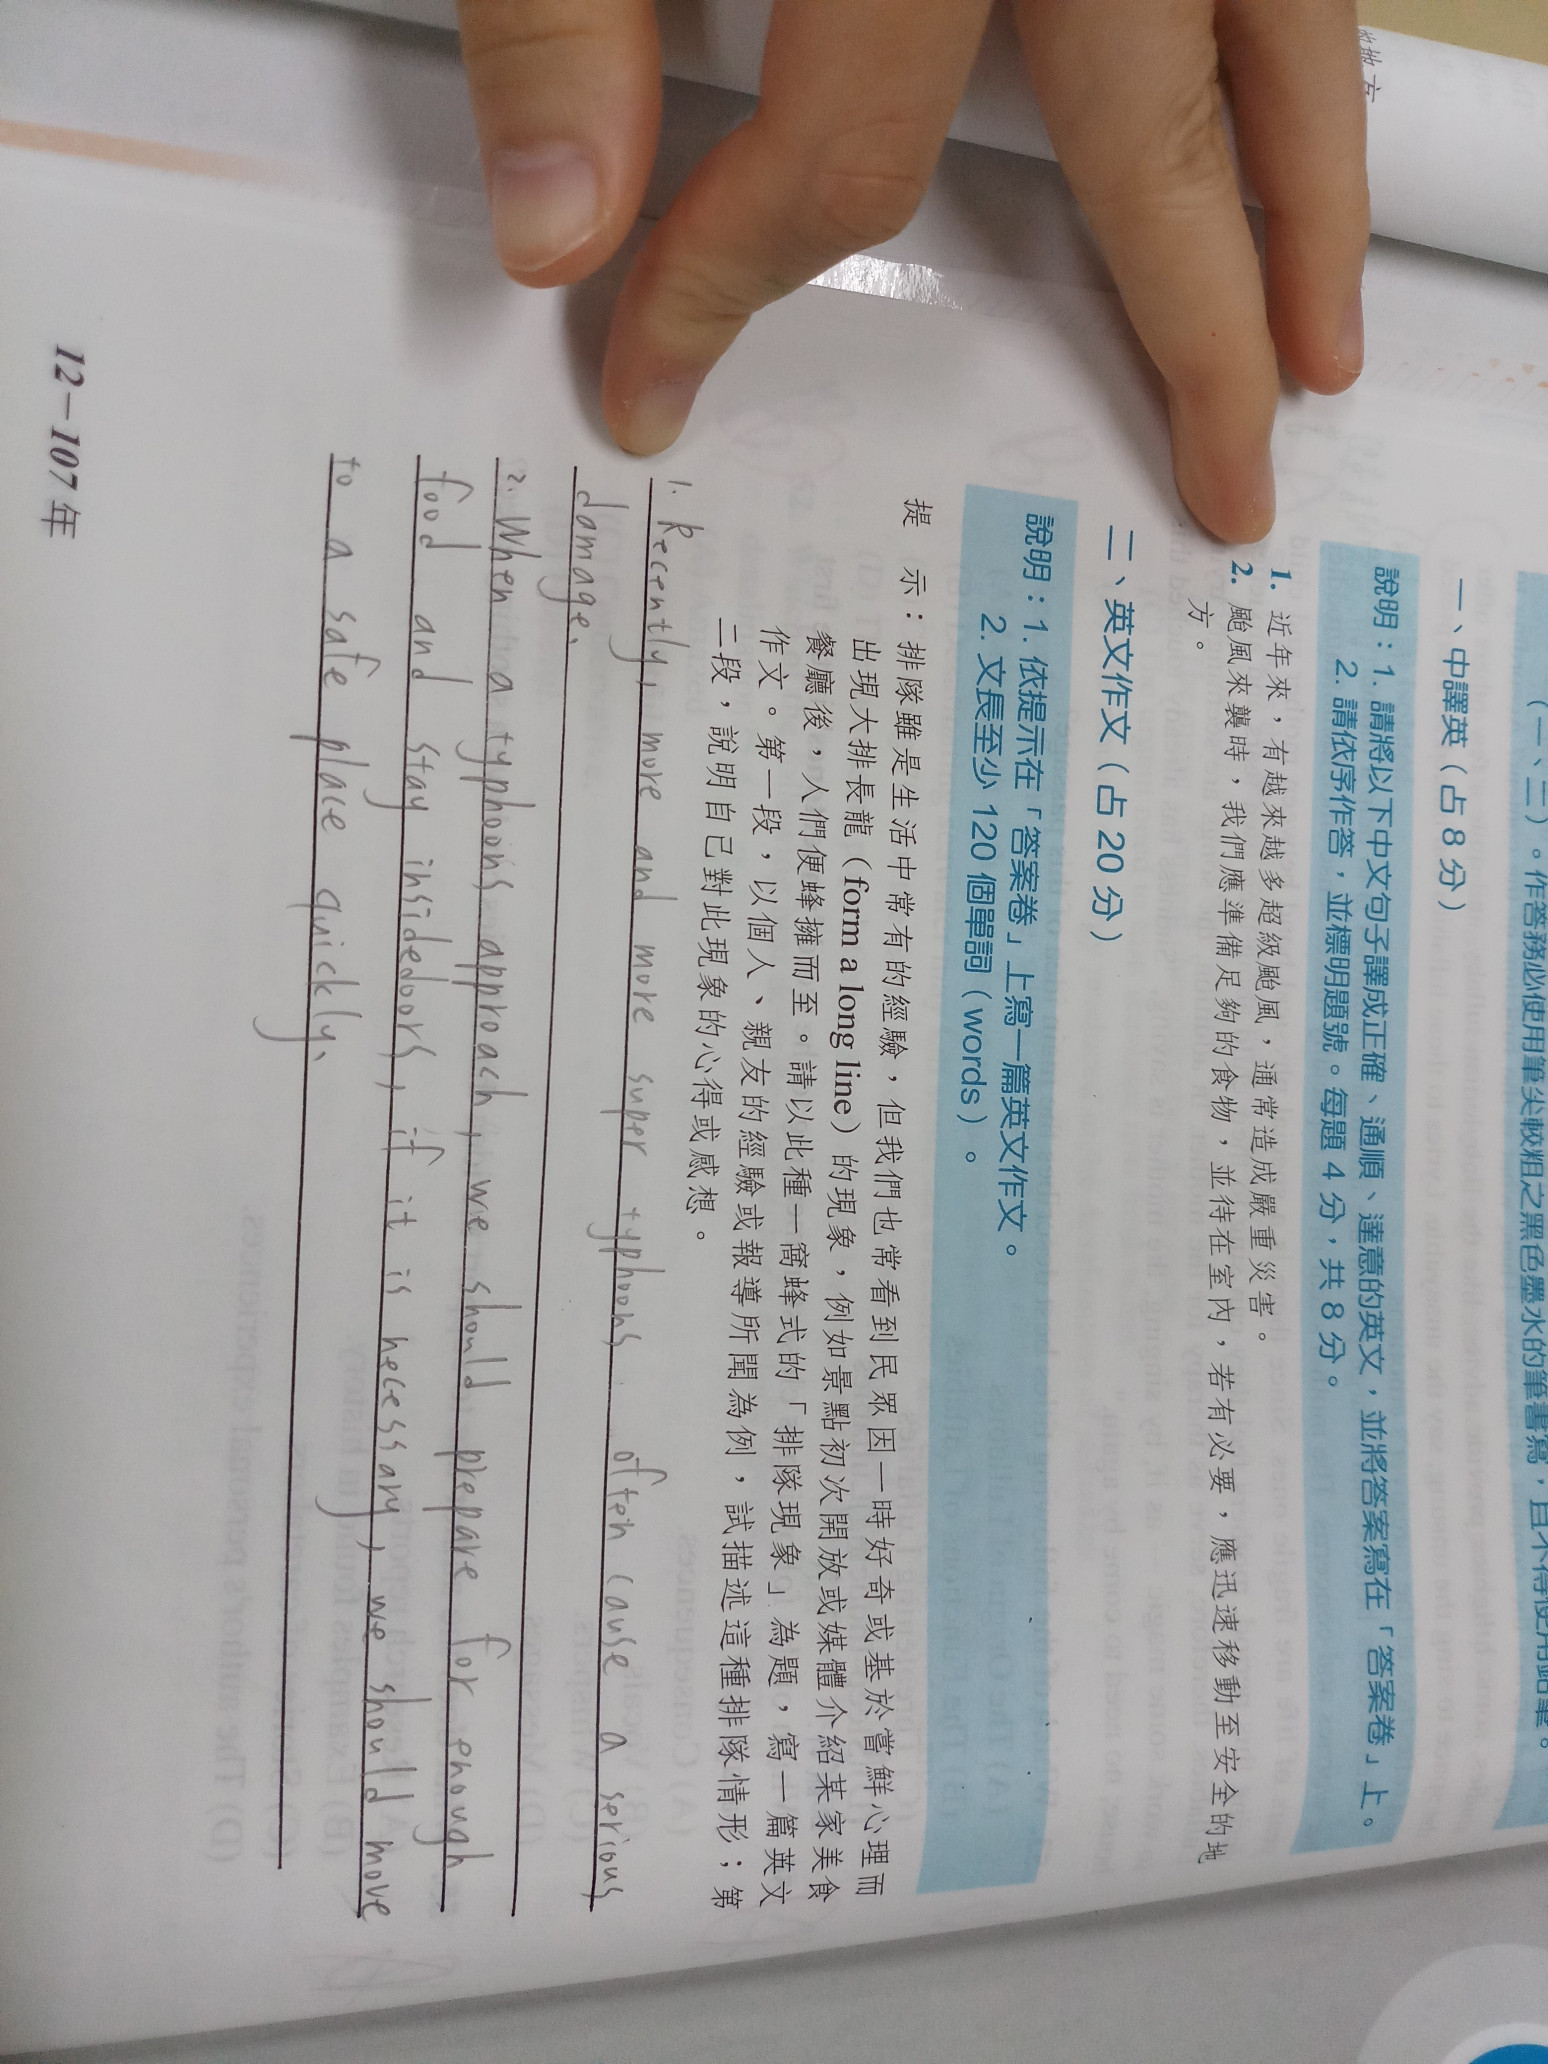 的地方
（一、二）。作答務必使用筆尖較粗之黑色墨水的筆書寫，且不得使用鉛筆。
一、中譯英（占 8 分）
說明：1. 請將以下中文句子譯成正確、通順、達意的英文，並將答案寫在「答案卷」上。
2. 請依序作答，並標明題號。每題 4 分，共 8 分。
1. 近年來，有越來越多超級颱風，通常造成嚴重災害。
2. 颱風來襲時，我們應準備足夠的食物，並待在室內，若有必要，應迅速移動至安全的地
方。
二、英文作文（占 20 分）
說明：1. 依提示在「答案卷」上寫一篇英文作文。
2. 文長至少 120 個單詞（words）。
提 示：排隊雖是生活中常有的經驗，但我們也常看到民眾因一時好奇或基於嘗鮮心理而
出現大排長龍（form a long line）的現象，例如景點初次開放或媒體介紹某家美食
餐廳後，人們便蜂擁而至。請以此種一窩蜂式的「排隊現象」為題，寫一篇英文
作文。第一段，以個人、親友的經驗或報導所聞為例，試描述這種排隊情形；第
二段，說明自己對此現象的心得或感想。
1. Recently, more and more super typhoons often cause a serious
damage.
2. When a typhoons approach, we should prepare for enough
food and stay insidedoors, if it is necessary, we should move
to a safe place quickly.
12－107年